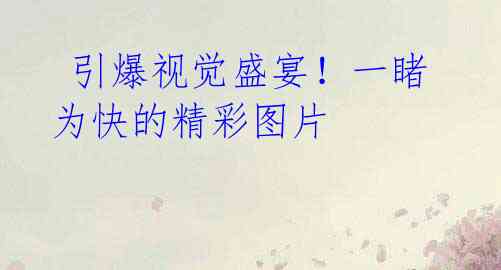 引爆视觉盛宴！一睹
为快的精彩图片